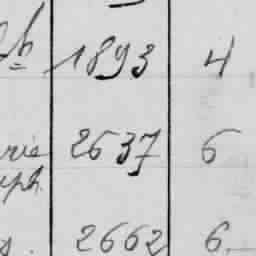 1893 4
2637 6
2662 6.